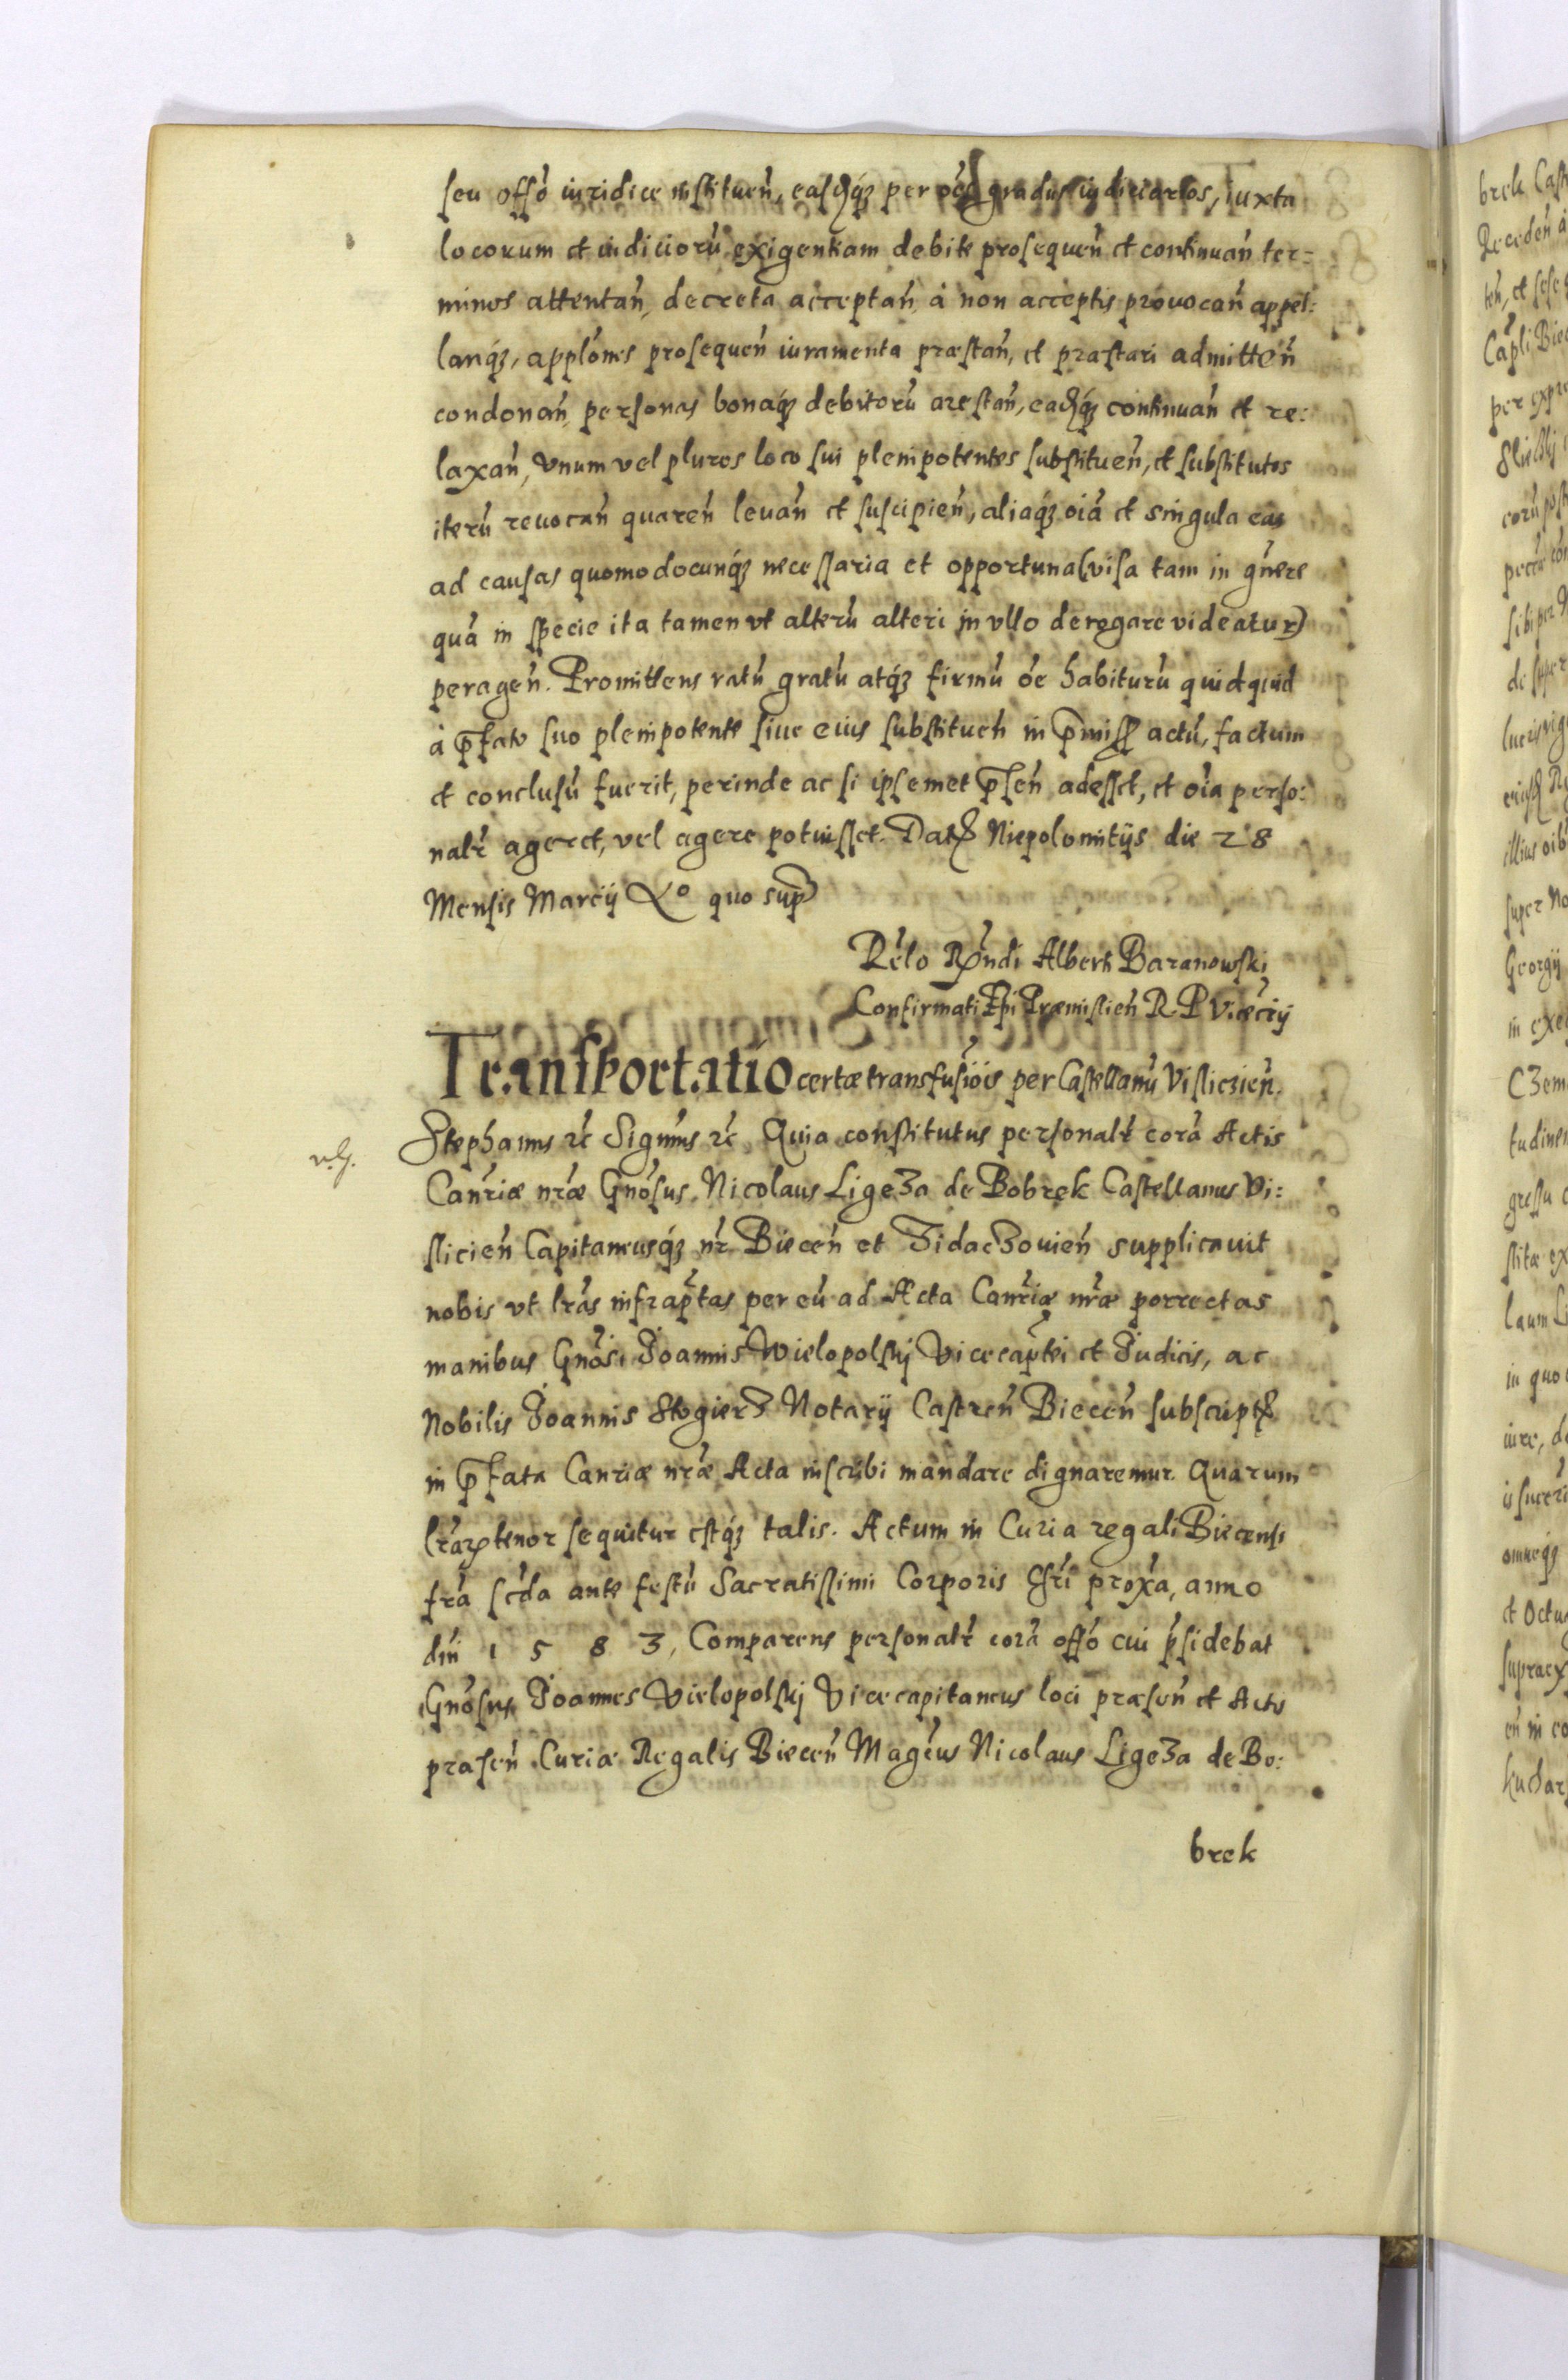 seu offő iuridice instituen̄, easdꝫ per oēs gradus iudiciarios, Iuxta
locorum et iudicioru᷈ exigentiam debite prosequen̄ et continuan̄ ter:
minos attentan̄, decreta acceptan̄ à non acceptis prouocan̄ appel:
lanqꝫ, applōnes prosequen̄ iuramenta præstan̄, et præstari admitten̄
condonan̄, personas bonaqꝫ debitorū arestan̄, eadqꝫ continuan̄ et re:
laxan̄, vnum vel plures loco sui plenipotentes substituen̄, et substitutos
iterū reuocan̄ quaren̄ leuan̄ et suscipien̄, aliaqꝫ oīa et singula eas
ad causas quomodocunqꝫ necessaria et opportuna (visa tam in gn̄ere
quā in specie ita tamen vt alterū alteri in vllo deregare videatur)
peragen̄. Promittens ratū gratū atqꝫ firmū oē habiturū quidquid
à p̄fato suo plenipotente siue eius substituen̄ in p̄miss actū, factum
et conclusū fuerit, perinde ac si ipsemet p̄sen̄ adesset, et oīa perso:
nalr̄ ageret, vel agere potuisset. Dat Niepolomitijs die 28
Mensis Marcij Ao quo sup
Rēlo Rn̄di Alberti Baranowski
Confirmati Ep̄i Præmislien̄ R. P. Vicecr̄ij
Transportatio certæ transfusiōis per Castellanū Vislicien̄.
Stephanus rc Signm̄s rc Quia constitutus personalr̄ corā Actis
Canr̄iæ nr̄æ Gnōsus Nicolaus Ligeza de Bobrek Castellanus Vi:
slicien̄ Capitaneusqꝫ nr̄ Biecen̄ et Zidaczouien̄ supplicauit
nobis vt lr̄as infrapt̄as per eū ad Acta Canr̄iæ nr̄æ porrectas
manibus Gnōsi Joannis Wielopolskj Vicecapt̄ei et Judicis, ac
Nobilis Joannis Stogierz Notarij Castren̄ Biecen̄ subscript
in p̄fata Canr̄iæ nr̄æ Acta inscribi mandare dignaremur. Quarum
lr̄arꝝ tenor sequitur estqꝫ talis. Actum in Curia regali Biecensi
fr̄a scd̄a ante festū Sacratissimi Corporis Chr̄i proxā, anno
dn̄i 1 5 8 3, Comparens personalr̄ corā offō cui p̄sidebat
Gnōsus Joannes Vielopolskj Vicecapitaneus loci præsen̄ et Actis
præsen̄ Curiæ Regalis Biecen̄ Magcūs Nicolaus Ligeza de Bo:
brek